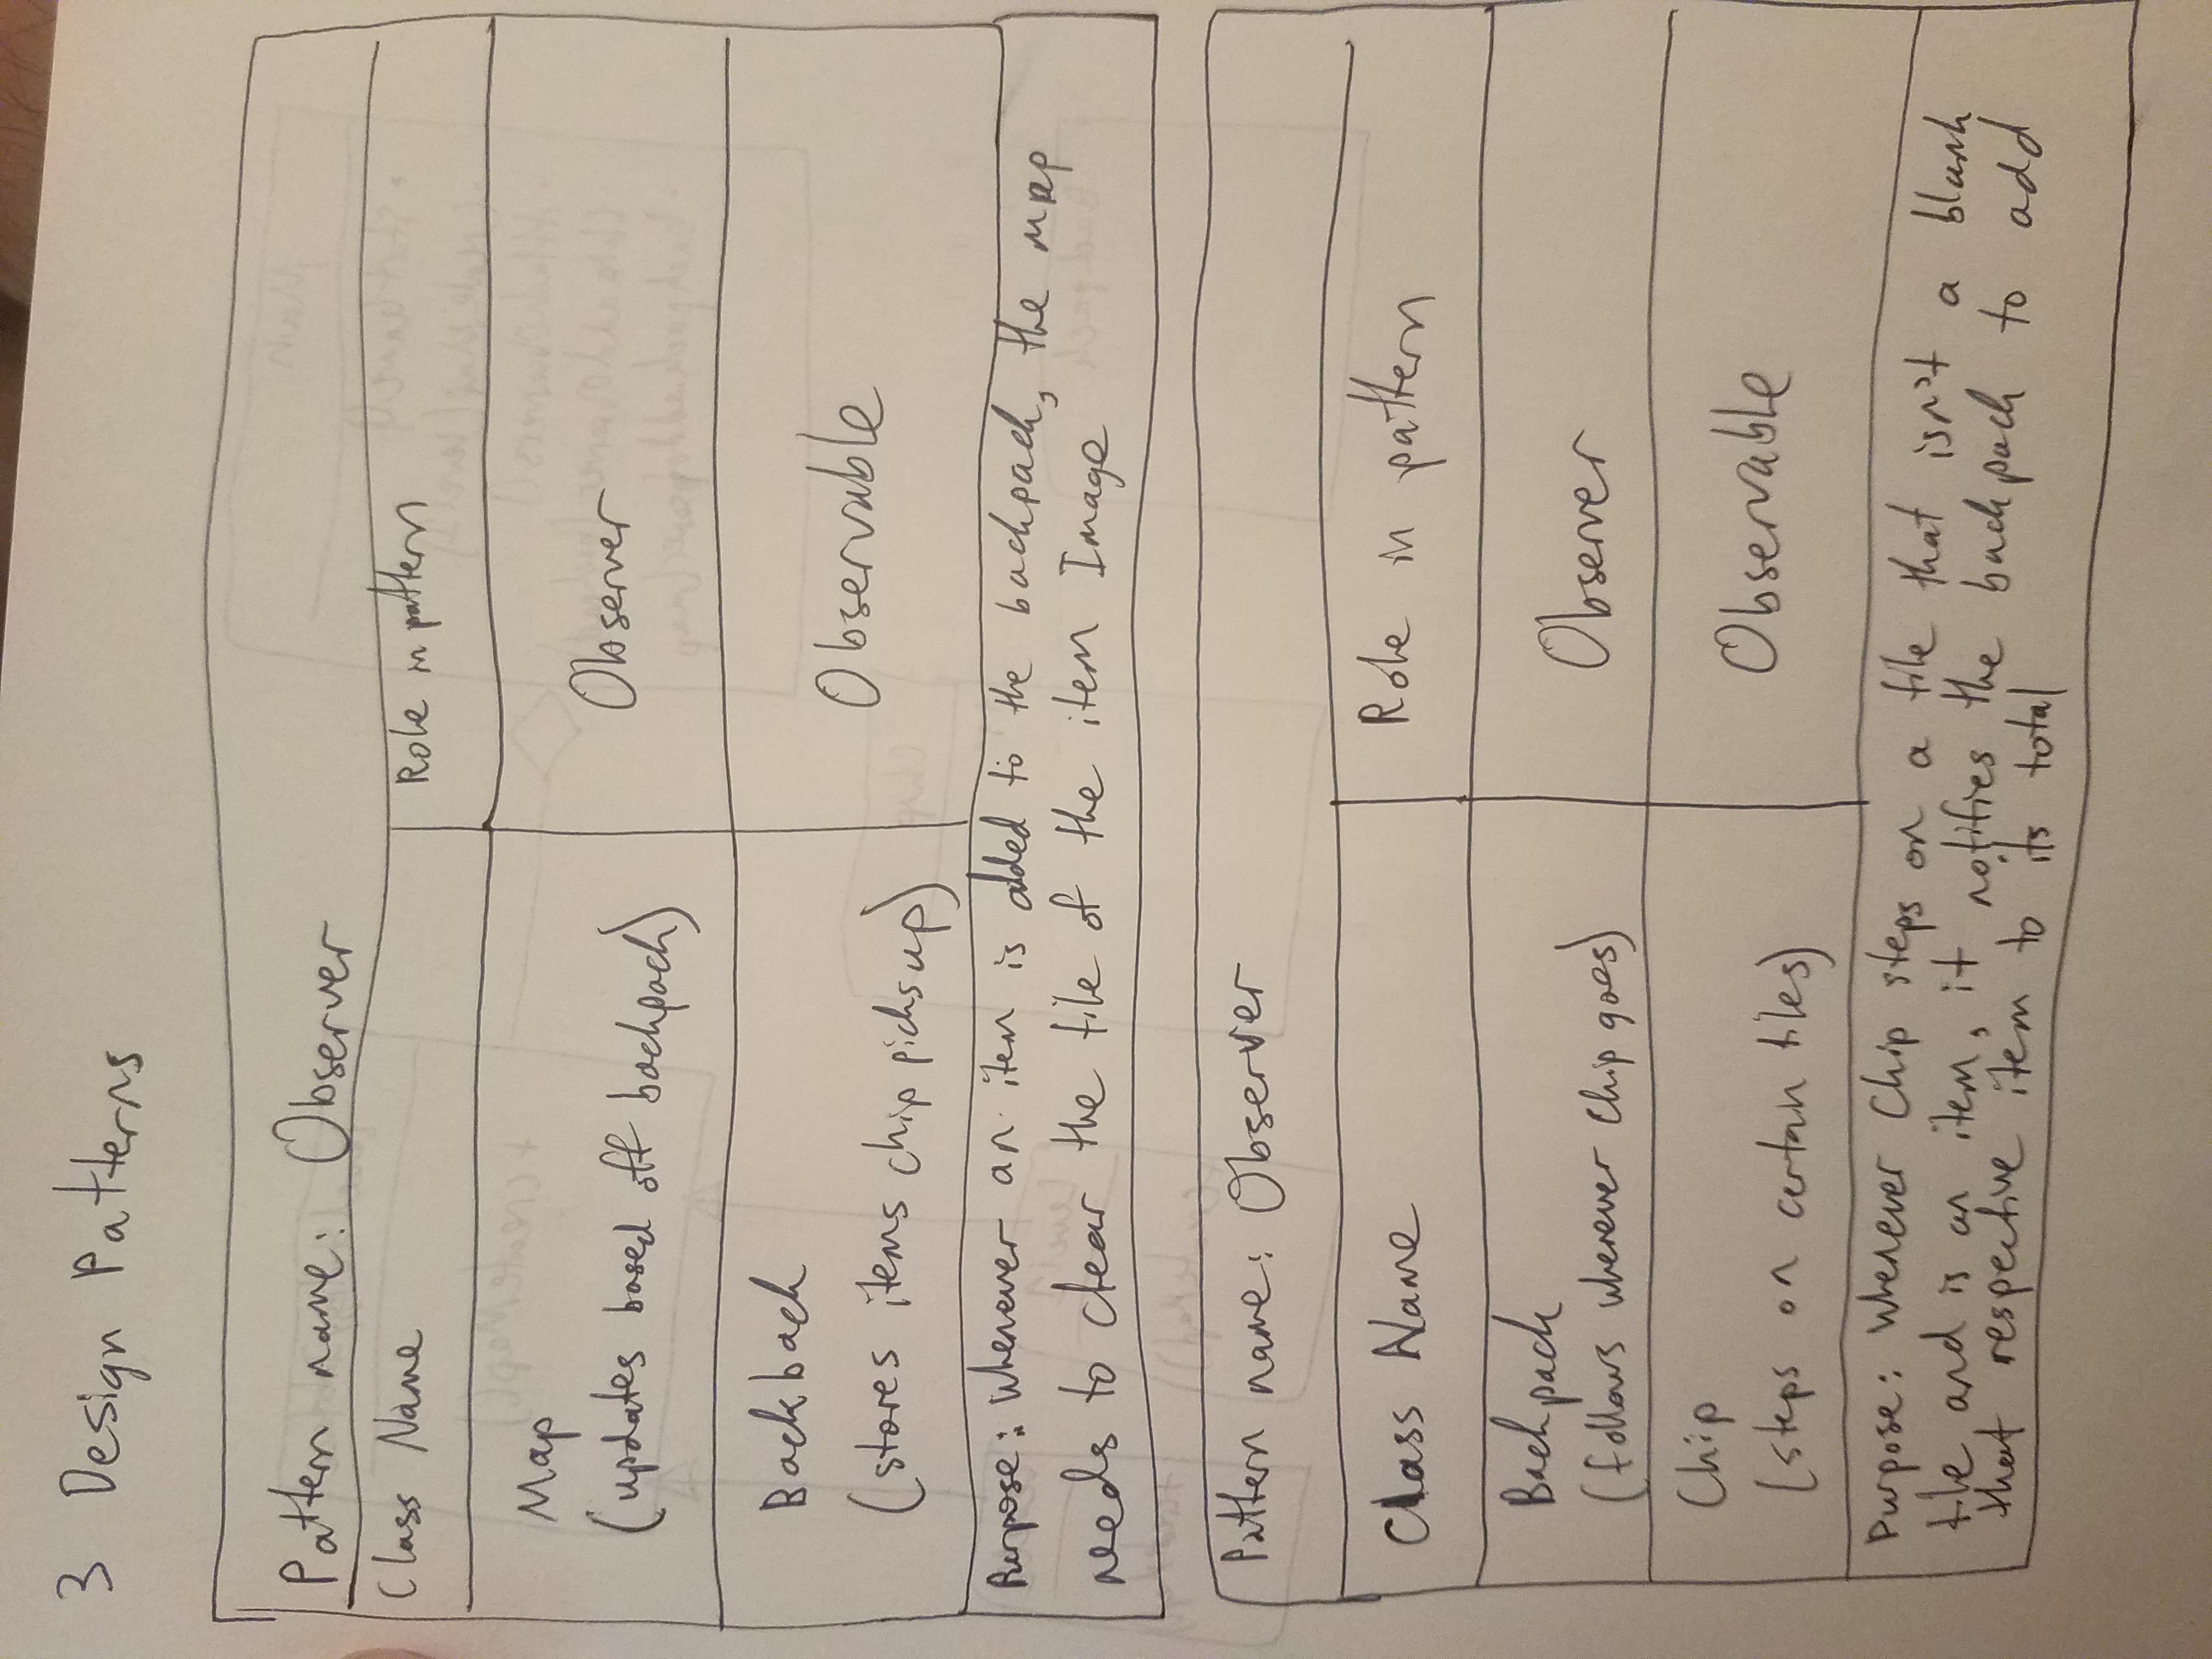 3 Design Patterns
Pattern name: Observer
Class Name
Role in pattern
Map
(updates based off backpack)
Observer
Backback
(stores items chip picks up)
Observable
Purpose: Whenever an item is added to the backpack, the map
needs to clear the tile of the item Image
Pattern name: Observer
Class Name
Role in pattern
Backpack
(follows wherever Chip goes)
Observer
Chip
(steps on certain tiles)
Observable
Purpose: Whenever Chip steps on a tile that isn't a blank
tile and is an item, it notifies the backpack to add
that respective item to its total